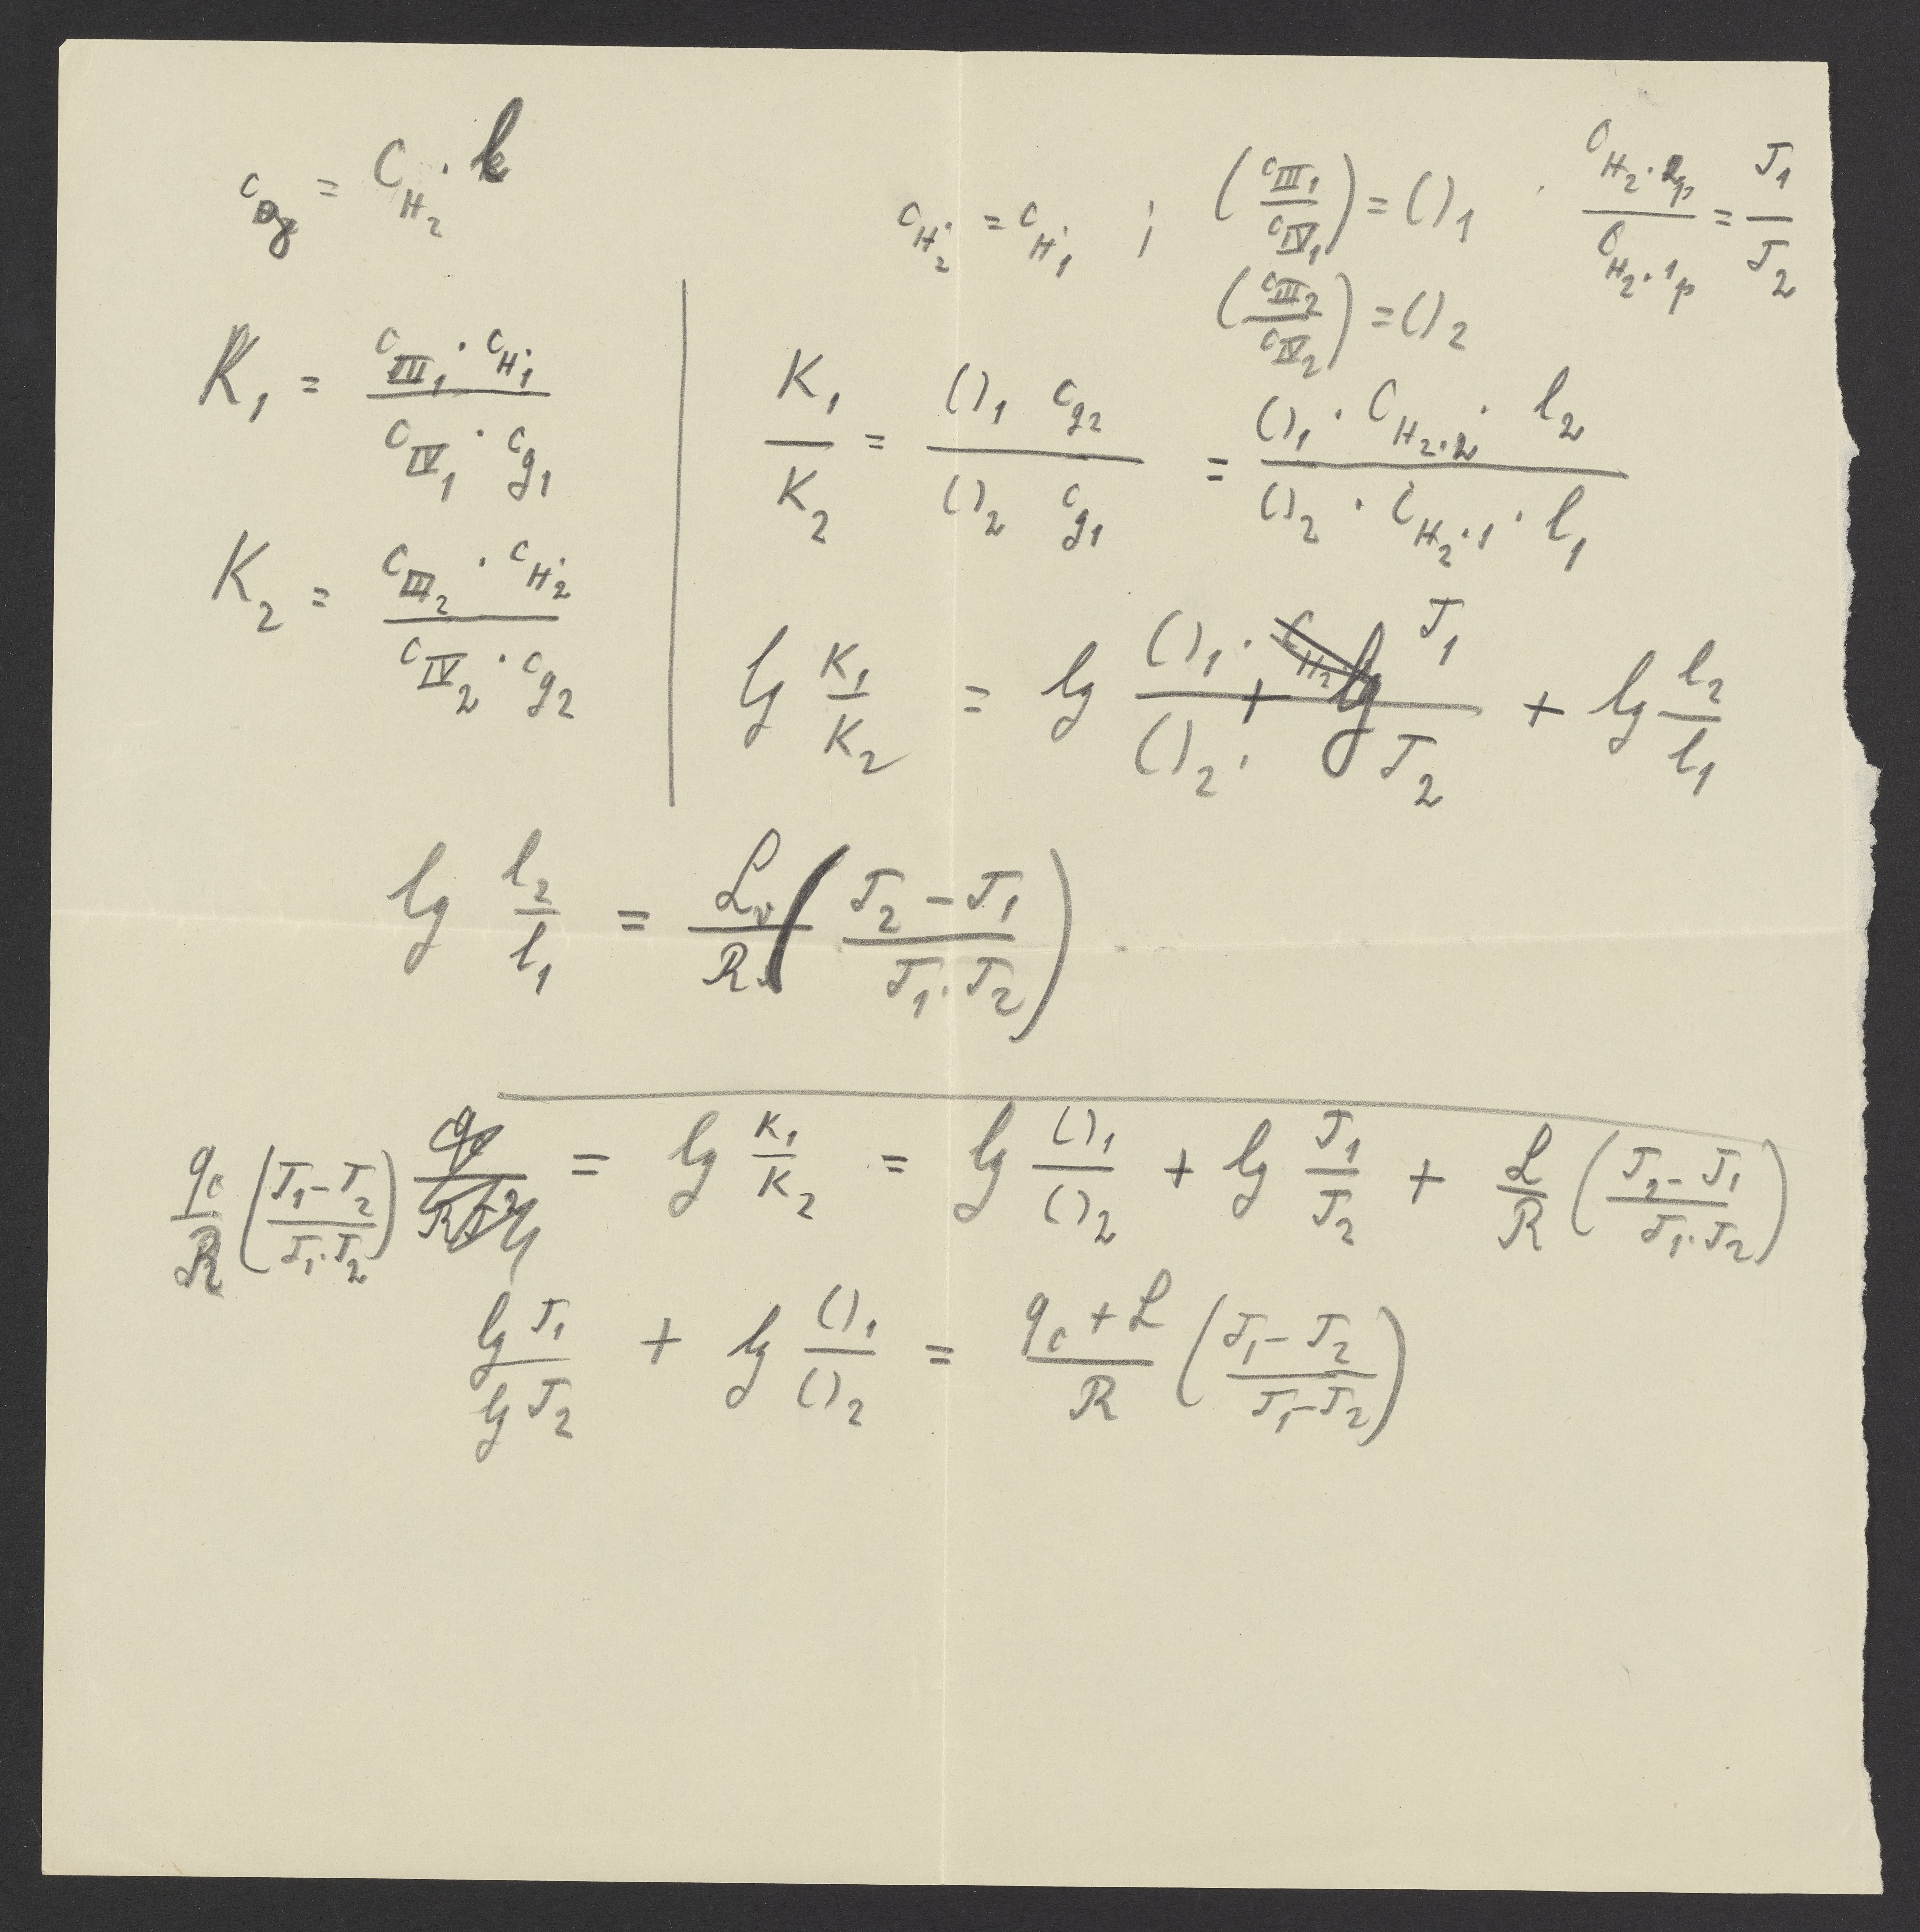 c_g = C_{H_2} · l
c_{H^·_2} = c_{H^·_1} ; (c_{III_1}/c_{IV_1}) = ()_1 · C_{H_2·2p}/C_{H_2·1p} = T_1/T_2
(c_{III_2}/c_{IV_2}) = ()_2
K_1 = c_{III_1} · c_{H^·_1} / c_{IV_1} · c_{g_1}
K_2 = c_{III_2} · c_{H^·_2} / c_{IV_2} · c_{g_2}
K_1/K_2 = ()_1 c_{g_2} / ()_2 c_{g_1} = ()_1 · C_{H_2·2} · l_2 / ()_2 · C_{H_2·1} · l_1
lg K_1/K_2 = lg ()_1 · T_1 / ()_2 · T_2 + lg l_2/l_1
lg l_2/l_1 = L_v/R (T_2 – T_1 / T_1 · T_2)
q_c/R (T_1 – T_2 / T_1 · T_2) = lg K_1/K_2 = lg ()_1/()_2 + lg T_1/T_2 + L/R (T_2 – T_1 / T_1 · T_2)
lg T_1 / lg T_2 + lg ()_1/()_2 = q_c + L / R (T_1 – T_2 / T_1 – T_2)